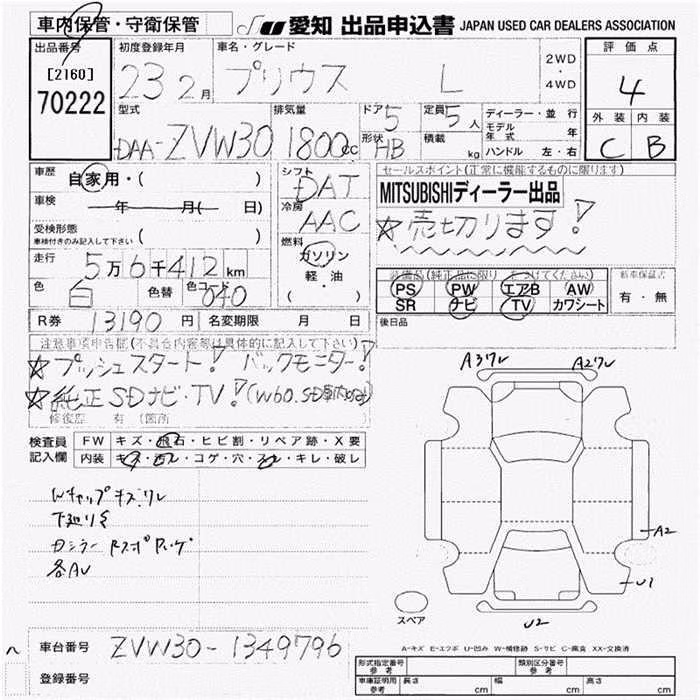 車内保管・守衛保管
JU 愛知 出品申込書 JAPAN USED CAR DEALERS ASSOCIATION
出品番号 初度登録年月 車名・グレード 評価点
[2160]
70222 23 2月 プリウス L 2WD・4WD 4
型式 排気量 ドア 5 定員 5人 ディーラー・並行 外装 内装
DAA-ZVW30 1800cc 形状 HB 積載 kg モデル年式 年 C B
ハンドル 左・右
車歴 自家用・( ) シフト DAT セールスポイント(正常に機能するものに限ります)
車検 年 月( 日) 冷房 AAC MITSUBISHIディーラー出品
受検形態 ( ) ☆売切ります!
車検付きのみ記入して下さい
燃料 ガソリン 軽・油 ( )
走行 5万6千412km
色 白 色替 色コード 040
装備品(純正品に限り をつけてください) 新車保証書
PS PW エアB AW 有・無
SR ナビ TV カワシート
R券 13190円 名変期限 月 日 後日品
注意事項申告欄(不具合内容等は具体的に記入して下さい)
☆プッシュスタート! バックモニター!
☆純正SDナビ・TV!(W60.SD車内
修復歴 有 (箇所
検査員記入欄 FW キズ・飛石・ヒビ割・リペア跡・X要
内装 キズ・汚レ・コゲ・穴・スレ・キレ・破レ
A3ワレ A2ワレ
Wキャップキズワレ
下廻りS
各AU
A2
U1
U2
スペア
A-キズ E-エクボ U-凹み W-補修跡 S-サビ C-腐食 XX-交換済
車台番号 ZVW30-1349796
登録番号
形式指定番号 参考 類別区分番号 参考
車庫証明用 参考 長さ cm 幅 cm 高さ cm